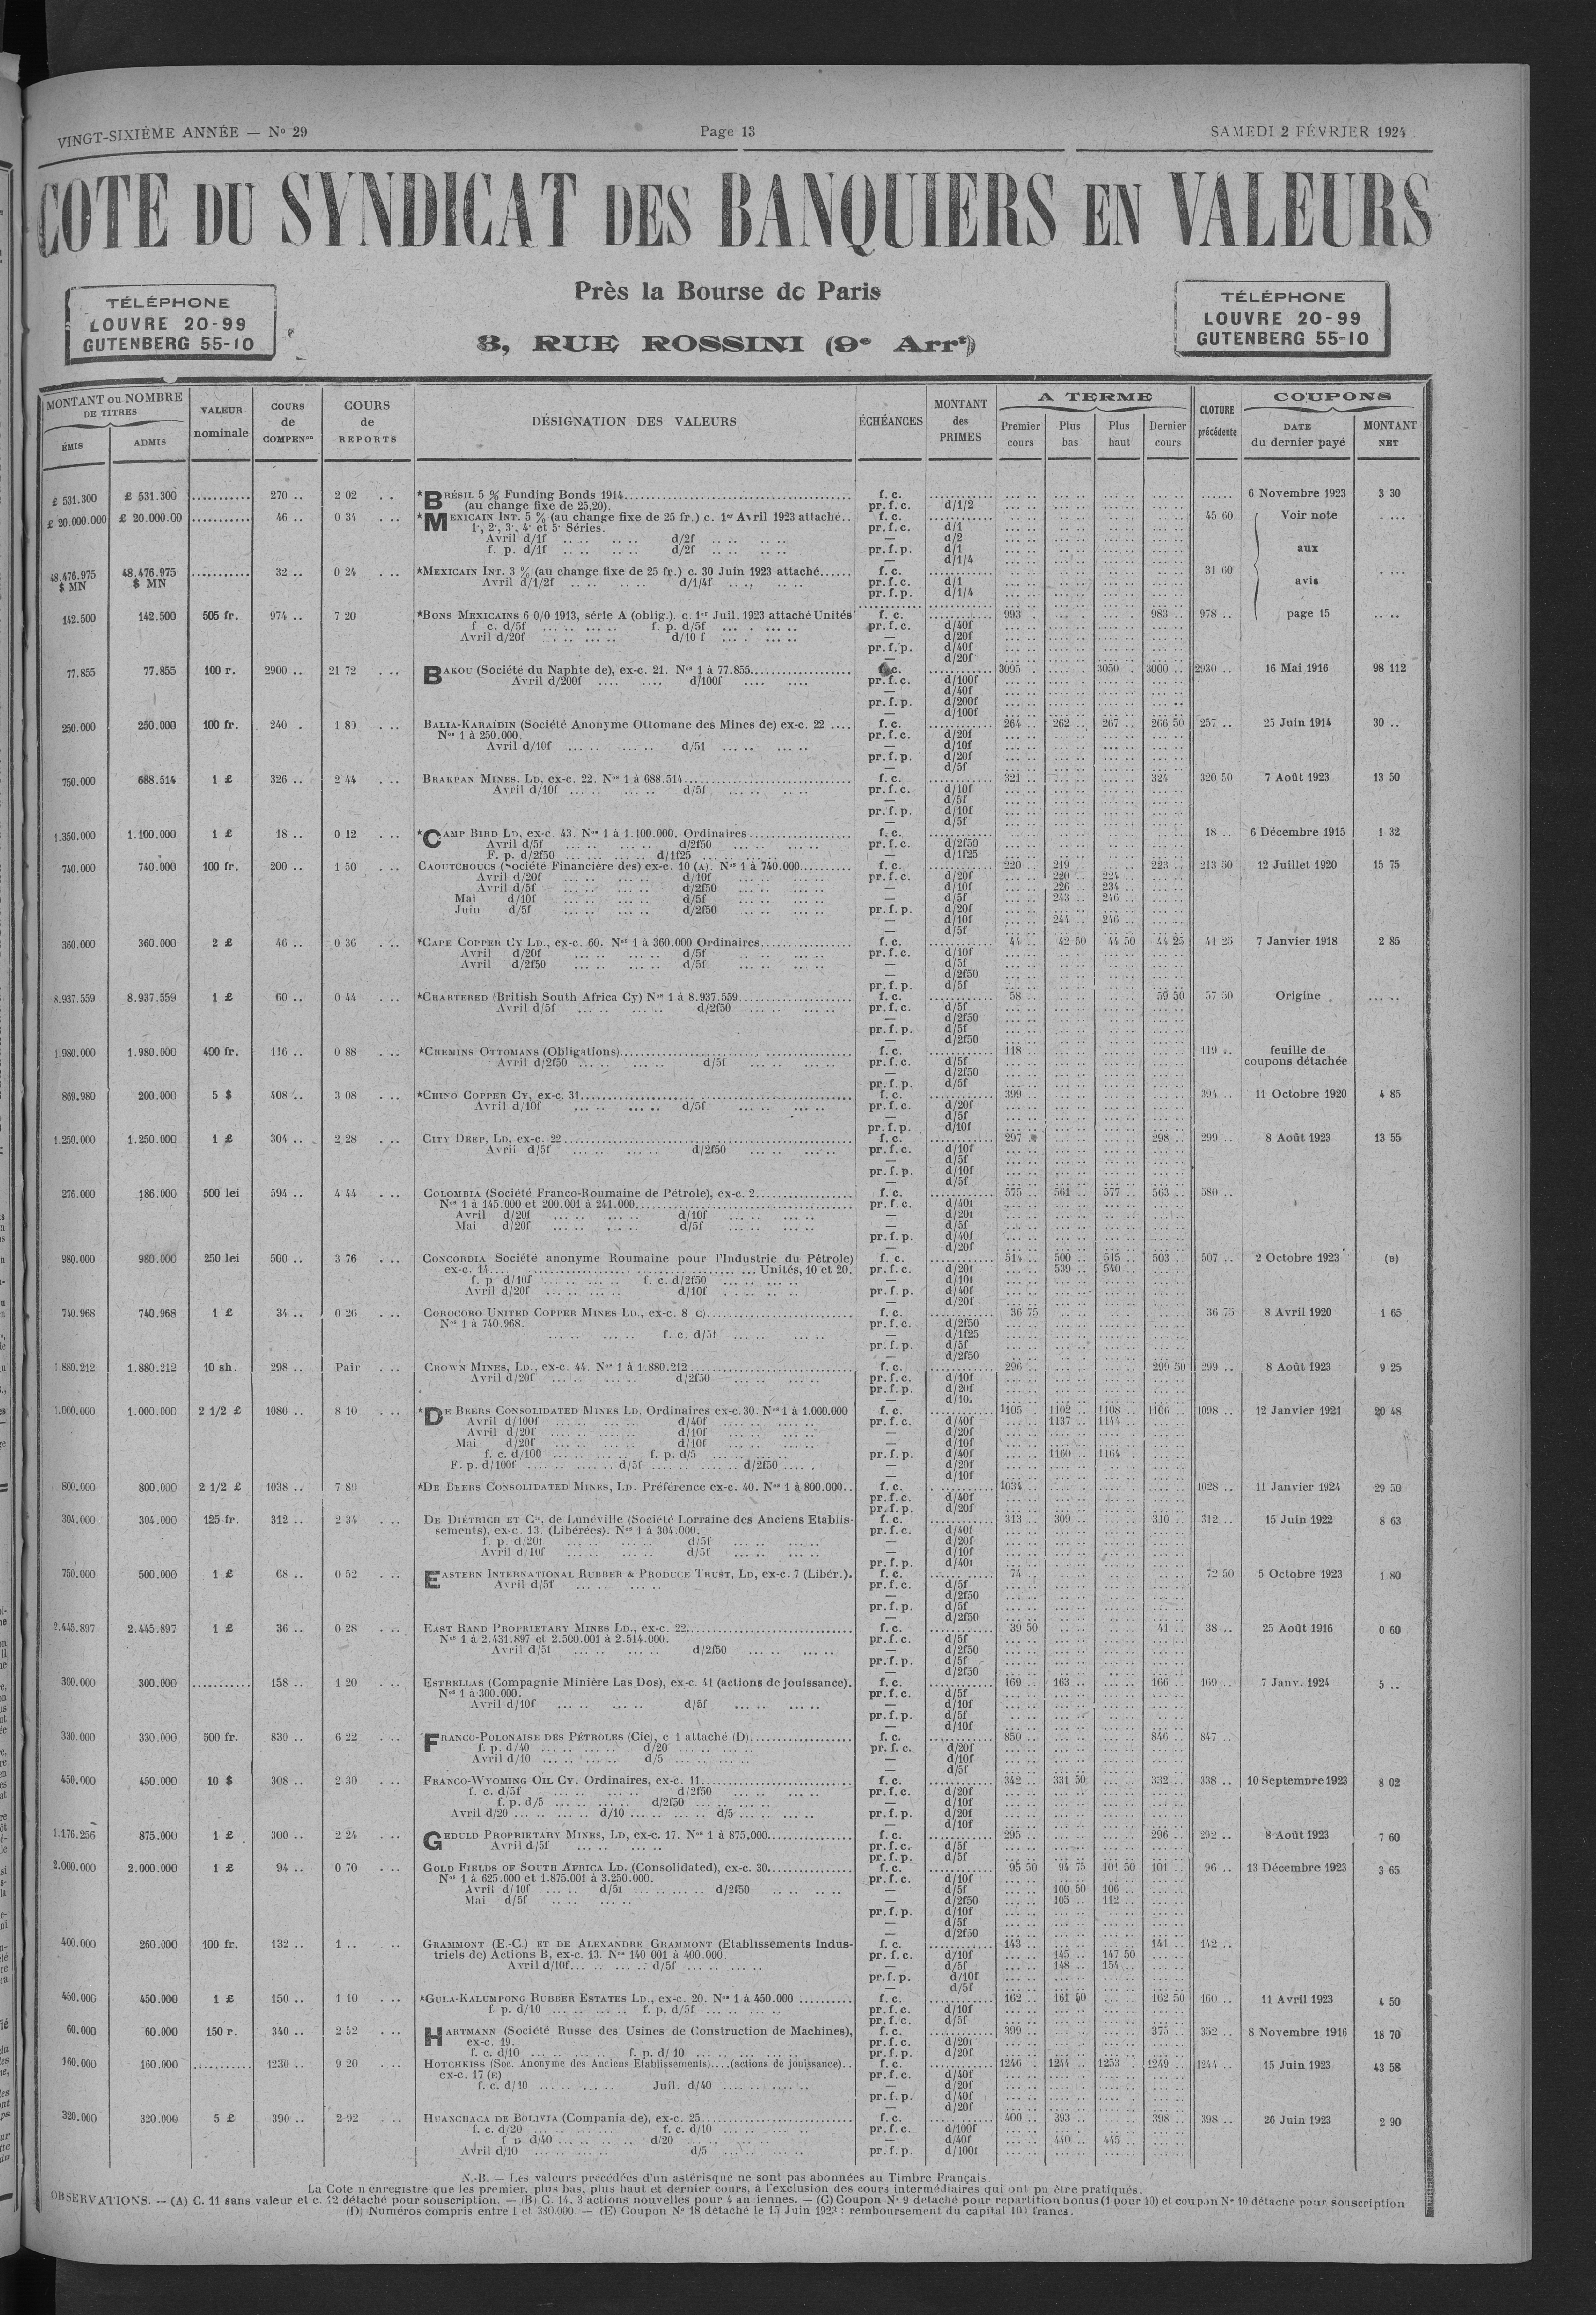 VINGT-SIXIÈME ANNÉE — Nº 29 Page 13 SAMEDI 2 FÉVRIER 1924
COTE DU SYNDICAT DES BANQUIERS EN VALEURS
Près la Bourse de Paris
8, RUE ROSSINI (9e Arrt)
TÉLÉPHONE
LOUVRE 20-99
GUTENBERG 55-10
TÉLÉPHONE
LOUVRE 20-99
GUTENBERG 55-10
MONTANT ou NOMBRE DE TITRES ÉMIS ADMIS
VALEUR nominale
COURS de COMPENson
COURS de REPORTS
DÉSIGNATION DES VALEURS
ÉCHÉANCES
MONTANT des PRIMES
A TERME Premier cours Plus bas Plus haut Dernier cours
CLOTURE précédente
COUPONS DATE du dernier payé MONTANT NET
£ 531.300 £ 531.300 270 .. 2 02 *BRÉSIL 5 % Funding Bonds 1914 f. c. 6 Novembre 1923 3 30
(au change fixe de 25,20). pr. f. c. d/1/2
£ 20.000.000 £ 20.000.00 46 .. 0 34 *MEXICAIN INT. 5 % (au change fixe de 25 fr.) c. 1er Avril 1923 attaché.. f. c. 45 60 Voir note
1·, 2·, 3·, 4· et 5· Séries. pr. f. c. d/1
Avril d/1f d/2f — d/2
f. p. d/1f d/2f pr. f. p. d/1 aux
— d/1/4
48.476.975 $ MN 48.476.975 $ MN 32 .. 0 24 *MEXICAIN INT. 3 % (au change fixe de 25 fr.) c. 30 Juin 1923 attaché f. c. 31 60
Avril d/1/2f d/1/4f pr. f. c. d/1 avis
pr. f. p. d/1/4
142.500 142.500 505 fr. 974 .. 7 20 *BONS MEXICAINS 6 0/0 1913, série A (oblig.). c. 1er Juil. 1923 attaché Unités f. c. 993 983 .. 978 .. page 15
f c. d/5f f. p. d/5f pr. f. c. d/40f
Avril d/20f d/10 f — d/20f
pr. f. p. d/40f
— d/20f
77.855 77.855 100 r. 2900 .. 21 72 BAKOU (Société du Naphte de), ex-c. 21. Nos 1 à 77.855 f. c. 3095 3050 3000 .. 2930 .. 16 Mai 1916 98 112
Avril d/200f d/100f pr. f. c. d/100f
— d/40f
pr. f. p. d/200f
— d/100f
250.000 250.000 100 fr. 240 . 1 80 BALIA-KARAÏDIN (Société Anonyme Ottomane des Mines de) ex-c. 22 f. c. 264 .. 262 .. 267 .. 266 50 257 .. 25 Juin 1914 30 ..
Nos 1 à 250.000. pr. f. c. d/20f
Avril d/10f d/5f — d/10f
pr. f. p. d/20f
— d/5f
750.000 688.514 1 £ 326 .. 2 44 BRAKPAN MINES. LD, ex-c. 22. Nos 1 à 688.514 f. c. 321 324 .. 320 50 7 Août 1923 13 50
Avril d/10f d/5f pr. f. c. d/10f
— d/5f
pr. f. p. d/10f
— d/5f
1.350.000 1.100.000 1 £ 18 .. 0 12 *CAMP BIRD LD, ex-c. 43. Nos 1 à 1.100.000. Ordinaires f. c. 18 .. 6 Décembre 1915 1 32
Avril d/5f d/2f50 pr. f. c. d/2f50
F. p. d/2f50 d/1f25 — d/1f25
740.000 740.000 100 fr. 200 .. 1 50 CAOUTCHOUCS (Société Financière des) ex-c. 10 (A). Nos 1 à 740.000 f. c. 220 .. 219 .. 223 .. 213 50 12 Juillet 1920 15 75
Avril d/20f d/10f pr. f. c. d/20f 220 .. 224 ..
Avril d/5f d/2f50 — d/10f 226 .. 234 ..
Mai d/10f d/5f — d/5f 243 .. 246 ..
Juin d/5f d/2f50 pr. f. p. d/20f
— d/10f 244 .. 246 ..
— d/5f
360.000 360.000 2 £ 46 .. 0 36 *CAPE COPPER Cy LD., ex-c. 60. Nos 1 à 360.000 Ordinaires f. c. 44 .. 42 50 44 50 44 25 41 25 7 Janvier 1918 2 85
Avril d/20f d/5f pr. f. c. d/10f
Avril d/2f50 d/5f — d/5f
— d/2f50
pr. f. p. d/5f
8.937.559 8.937.559 1 £ 60 .. 0 44 *CHARTERED (British South Africa Cy) Nos 1 à 8.937.559 f. c. 58 .. 59 50 57 50 Origine
Avril d/5f d/2f50 pr. f. c. d/5f
— d/2f50
pr. f. p. d/5f
— d/2f50
1.980.000 1.980.000 400 fr. 116 .. 0 88 *CHEMINS OTTOMANS (Obligations) f. c. 118 .. 119 .. feuille de
Avril d/2f50 d/5f pr. f. c. d/5f coupons détachée
— d/2f50
pr. f. p. d/5f
869.980 200.000 5 $ 408 .. 3 08 *CHINO COPPER Cy, ex-c. 31 f. c. 399 394 .. 11 Octobre 1920 4 85
Avril d/10f d/5f pr. f. c. d/20f
— d/5f
pr. f. p. d/10f
1.250.000 1.250.000 1 £ 304 .. 2 28 CITY DEEP, LD, ex-c. 22 f. c. 297 298 .. 299 .. 8 Août 1923 13 55
Avril d/5f d/2f50 pr. f. c. d/10f
— d/5f
pr. f. p. d/10f
— d/5f
276.000 186.000 500 lei 594 .. 4 44 COLOMBIA (Société Franco-Roumaine de Pétrole), ex-c. 2 f. c. 575 .. 561 .. 577 .. 563 .. 580 ..
Nos 1 à 145.000 et 200.001 à 241.000 pr. f. c. d/40f
Avril d/20f d/10f — d/20f
Mai d/20f d/5f — d/5f
pr. f. p. d/40f
— d/20f
980.000 980.000 250 lei 500 .. 3 76 CONCORDIA Société anonyme Roumaine pour l'Industrie du Pétrole) f. c. 514 .. 500 .. 515 .. 503 .. 507 .. 2 Octobre 1923 (B)
ex-c. 14 Unités, 10 et 20. pr. f. c. d/20f 539 .. 540 ..
f. p d/10f f. c. d/2f50 — d/10f
Avril d/20f d/10f pr. f. p. d/40f
— d/20f
740.968 740.968 1 £ 34 .. 0 26 COROCORO UNITED COPPER MINES LD., ex-c. 8 C) f. c. 36 75 36 75 8 Avril 1920 1 65
Nos 1 à 740.968. pr. f. c. d/2f50
f. c. d/5f — d/1f25
pr. f. p. d/5f
— d/2f50
1.880.212 1.880.212 10 sh. 298 .. Pair CROWN MINES, LD., ex-c. 44. Nos 1 à 1.880.212 f. c. 296 .. 299 50 299 .. 8 Août 1923 9 25
Avril d/20f d/2f50 pr. f. c. d/10f
pr. f. p. d/20f
— d/10.
1.000.000 1.000.000 2 1/2 £ 1080 .. 8 10 *DE BEERS CONSOLIDATED MINES LD, Ordinaires ex-c. 30. Nos 1 à 1.000.000 f. c. 1105 .. 1102 .. 1108 .. 1106 .. 1098 .. 12 Janvier 1921 20 48
Avril d/100f d/40f pr. f. c. d/40f 1137 .. 1144 ..
Avril d/20f d/10f — d/20f
Mai d/20f d/10f — d/10f
f. c. d/100 f. p. d/5 pr. f. p. d/40f 1160 .. 1164 ..
F. p. d/100f d/5f d/2f50 — d/20f
— d/10f
800.000 800.000 2 1/2 £ 1038 .. 7 80 *DE BEERS CONSOLIDATED MINES, LD. Préférence ex-c. 40. Nos 1 à 800.000.. f. c. 1034 1028 .. 11 Janvier 1924 29 50
pr. f. c. d/40f
pr. f. p. d/20f
304.000 304.000 125 fr. 312 .. 2 34 DE DIÉTRICH ET Cie, de Lunéville (Société Lorraine des Anciens Etablis- f. c. 313 .. 309 .. 310 .. 312 .. 15 Juin 1922 8 63
sements), ex-c. 13. (Libérées). Nos 1 à 304.000. pr. f. c. d/40f
f. p. d/20f d/5f — d/20f
Avril d/10f d/5f — d/10f
pr. f. p. d/40f
750.000 500.000 1 £ 68 .. 0 52 EASTERN INTERNATIONAL RUBBER & PRODUCE TRUST, LD, ex-c. 7 (Libér.). f. c. 74 .. 72 50 5 Octobre 1923 1 80
Avril d/5f pr. f. c. d/5f
— d/2f50
pr. f. p. d/5f
— d/2f50
2.445.897 2.445.897 1 £ 36 .. 0 28 EAST RAND PROPRIETARY MINES LD., ex-c. 22 f. c. 39 50 41 .. 38 .. 25 Août 1916 0 60
Nos 1 à 2.431.897 et 2.500.001 à 2.514.000. pr. f. c. d/5f
Avril d/5f d/2f50 — d/2f50
pr. f. p. d/5f
— d/2f50
300.000 300.000 158 .. 1 20 ESTRELLAS (Compagnie Minière Las Dos), ex-c. 41 (actions de jouissance). f. c. 169 .. 163 .. 166 .. 169 .. 7 Janv. 1924 5 ..
Nos 1 à 300.000. pr. f. c. d/5f
Avril d/10f d/5f — d/10f
pr. f. p. d/5f
— d/10f
330.000 330.000 500 fr. 830 .. 6 22 FRANCO-POLONAISE DES PÉTROLES (Cie), c 1 attaché (D) f. c. 850 846 .. 847
f. p. d/40 d/20 pr. f. c. d/20f
Avril d/10 d/5 — d/10f
— d/5f
450.000 450.000 10 $ 308 .. 2 30 FRANCO-WYOMING OIL Cy. Ordinaires, ex-c. 11 f. c. 342 .. 331 50 332 .. 338 .. 10 Septembre 1923 8 02
f. c. d/5f d/2f50 pr. f. c. d/20f
f. p. d/5 d/2f50 — d/10f
Avril d/20 d/10 d/5 pr. f. p. d/20f
— d/10f
1.176.256 875.000 1 £ 300 .. 2 24 GEDULD PROPRIETARY MINES, LD, ex-c. 17. Nos 1 à 875.000 f. c. 295 296 .. 292 .. 8 Août 1923 7 60
Avril d/5f pr. f. c. d/5f
pr. f. p. d/5f
2.000.000 2.000.000 1 £ 94 .. 0 70 GOLD FIELDS OF SOUTH AFRICA LD. (Consolidated), ex-c. 30 f. c. 95 50 94 75 101 50 101 .. 96 .. 13 Décembre 1923 3 65
Nos 1 à 625.000 et 1.875.001 à 3.250.000. pr. f. c. d/10f
Avril d/10f d/5f d/2f50 — d/5f 100 50 106 ..
Mai d/5f — d/2f50 105 .. 112 ..
pr. f. p. d/10f
— d/5f
— d/2f50
400.000 260.000 100 fr. 132 .. 1 .. GRAMMONT (E.-C.) ET DE ALEXANDRE GRAMMONT (Etablissements Indus- f. c. 143 .. 141 .. 142 ..
triels de) Actions B, ex-c. 13. Nos 140 001 à 400.000. pr. f. c. d/10f 145 .. 147 50
Avril d/10f d/5f — d/5f 148 .. 154 ..
pr. f. p. d/10f
— d/5f
450.000 450.000 1 £ 150 .. 1 10 *GULA-KALUMPONG RUBBER ESTATES LD., ex-c. 20. Nos 1 à 450.000 f. c. 162 .. 161 50 162 50 160 .. 11 Avril 1923 4 50
f. p. d/10 f. p. d/5f pr. f. c. d/10f
pr. f. c. d/5f
60.000 60.000 150 r. 340 .. 2 52 HARTMANN (Société Russe des Usines de Construction de Machines), f. c. 399 375 .. 352 .. 8 Novembre 1916 18 70
ex-c. 19. pr. f. c. d/20f
f. c. d/10 f. p. d/ 10 pr. f. p. d/20f
160.000 160.000 1230 .. 9 20 HOTCHKISS (Soc. Anonyme des Anciens Etablissements)....(actions de jouissance).. f. c. 1246 .. 1244 .. 1253 .. 1249 .. 1244 .. 15 Juin 1923 43 58
ex-c. 17 (E) pr. f. c. d/40f
f. c. d/10 Juil. d/40 — d/20f
pr. f. p. d/40f
— d/20f
320.000 320.000 5 £ 390 .. 2 92 HUANCHACA DE BOLIVIA (Compania de), ex-c. 25 f. c. 400 .. 393 .. 398 .. 398 .. 26 Juin 1923 2 90
f. c. d/20 f. c. d/10 pr. f. c. d/100f
f p d/40 d/20 — d/40f 440 .. 445 ..
Avril d/10 d/5 pr. f. p. d/100f
N.-B. — Les valeurs precédées d'un astérisque ne sont pas abonnées au Timbre Français.
La Cote n enregistre que les premier, plus bas, plus haut et dernier cours, à l'exclusion des cours intermédiaires qui ont pu être pratiqués.
OBSERVATIONS. — (A) C. 11 sans valeur et c. 12 détaché pour souscription. — (B) C. 14, 3 actions nouvelles pour 4 anciennes. — (C) Coupon Nº 9 detaché pour repartition bonus (1 pour 10) et coupon Nº 10 détaché pour souscription
(D) Numéros compris entre 1 et 380.000. — (E) Coupon Nº 18 détaché le 15 Juin 1923 : remboursement du capital 100 francs.